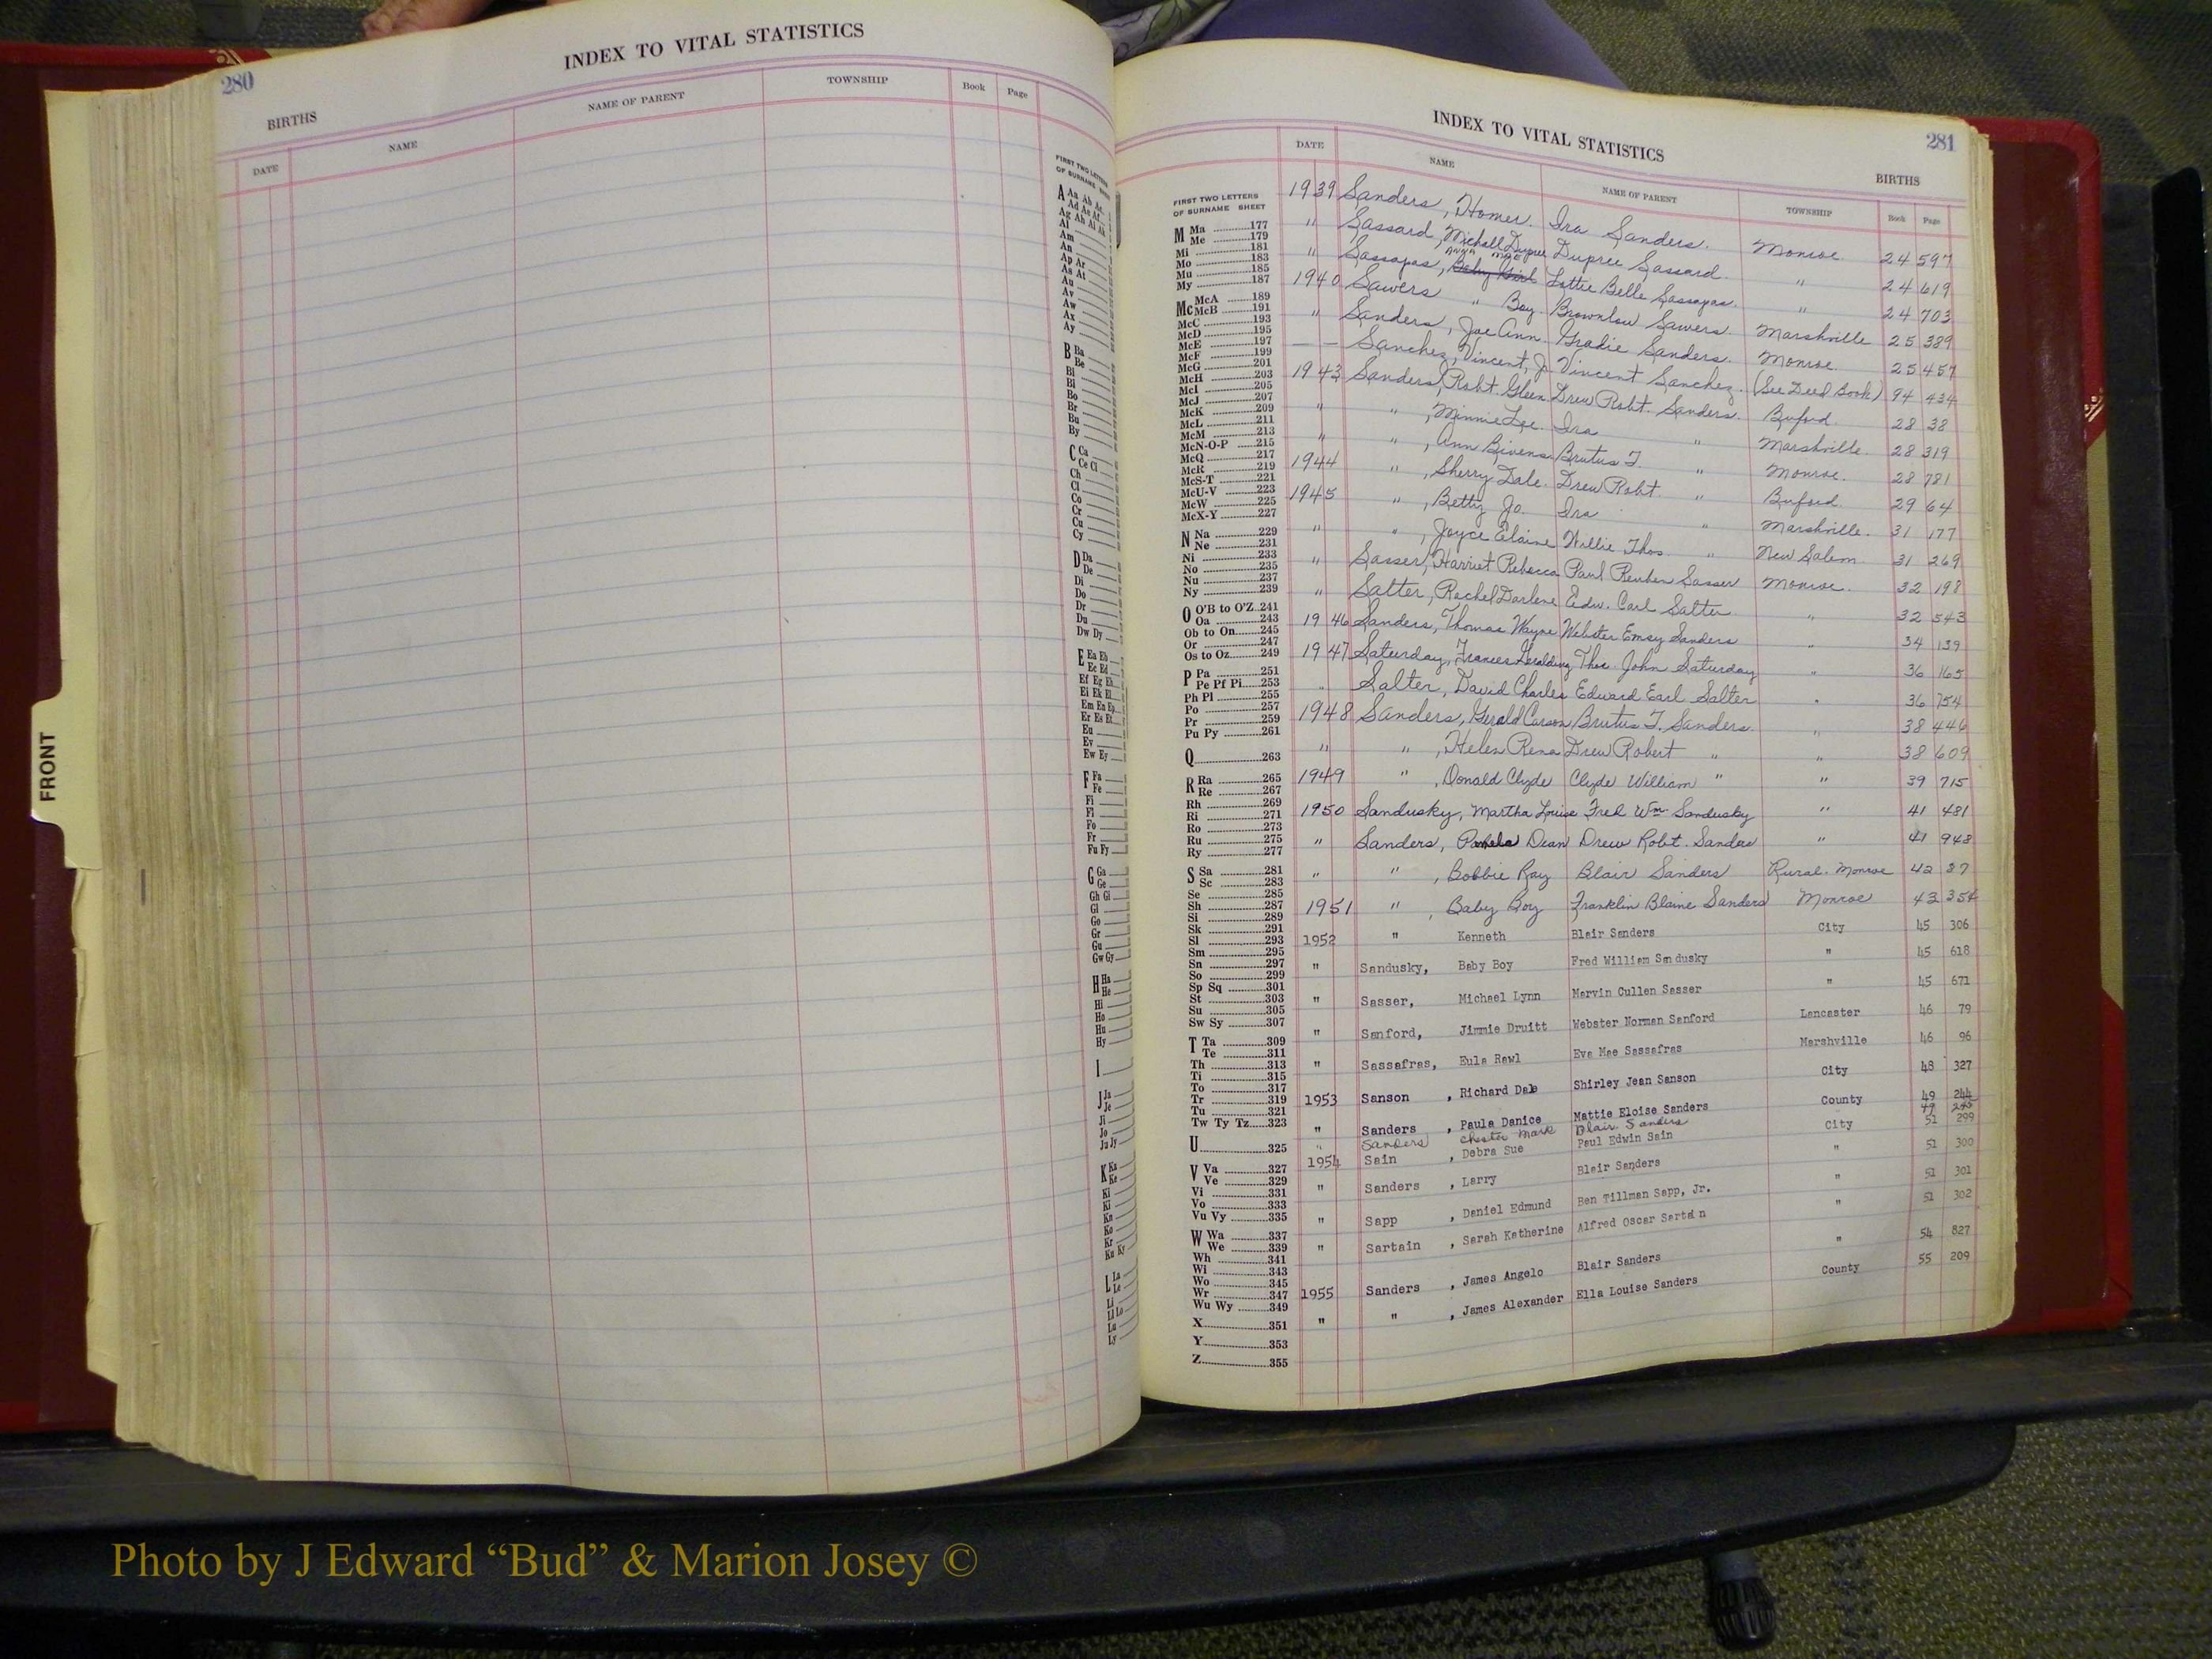 280
INDEX TO VITAL STATISTICS
BIRTHS
DATE NAME NAME OF PARENT TOWNSHIP Book Page
FIRST TWO LETTERS
OF SURNAME
A Aa Ab Ac
Ad Ae Af
Ag Ah Ai Ak
Al
Am
An
Ap Ar
As At
Au
Av
Aw
Ax
Ay
B Ba
Be
Bi
Bl
Bo
Br
Bu
By
C Ca
Ce Ci
Ch
Cl
Co
Cr
Cu
Cy
D Da
De
Di
Do
Dr
Du
Dw Dy
E Ea Eb
Ec Ed
Ef Eg Eh
Ei Ek El
Em En Ep
Er Es Et
Eu
Ev
Ew Ey
F Fa
Fe
Fi
Fl
Fo
Fr
Fu Fy
G Ga
Ge
Gh Gi
Gl
Go
Gr
Gu
Gw Gy
H Ha
He
Hi
Ho
Hu
Hy
I
J Ja
Je
Ji
Jo
Ju Jy
K Ka
Ke
Ki
Kl
Kn
Ko
Kr
Ku Ky
L La
Le
Li
Ll Lo
Lu
Ly
FRONT
INDEX TO VITAL STATISTICS
281
BIRTHS
DATE NAME NAME OF PARENT TOWNSHIP Book Page
FIRST TWO LETTERS
OF SURNAME SHEET
M Ma 177
Me 179
Mi 181
Mo 183
Mu 185
My 187
Mc McA 189
McB 191
McC 193
McD 195
McE 197
McF 199
McG 201
McH 203
McI 205
McJ 207
McK 209
McL 211
McM 213
McN-O-P 215
McQ 217
McR 219
McS-T 221
McU-V 223
McW 225
McX-Y 227
N Na 229
Ne 231
Ni 233
No 235
Nu 237
Ny 239
O O'B to O'Z 241
Oa 243
Ob to On 245
Or 247
Os to Oz 249
P Pa 251
Pe Pf Pi 253
Ph Pl 255
Po 257
Pr 259
Pu Py 261
Q 263
R Ra 265
Re 267
Rh 269
Ri 271
Ro 273
Ru 275
Ry 277
S Sa 281
Sc 283
Se 285
Sh 287
Si 289
Sk 291
Sl 293
Sm 295
Sn 297
So 299
Sp Sq 301
St 303
Su 305
Sw Sy 307
T Ta 309
Te 311
Th 313
Ti 315
To 317
Tr 319
Tu 321
Tw Ty Tz 323
U 325
V Va 327
Ve 329
Vi 331
Vo 333
Vu Vy 335
W Wa 337
We 339
Wh 341
Wi 343
Wo 345
Wr 347
Wu Wy 349
X 351
Y 353
Z 355
1939 Sanders, Homer. Ira Sanders. Monroe. 24 597
" Sassard, Michall Dupree Dupree Sassard. " 24 619
Anna Mae
" Sassapas, Baby Girl Lottie Belle Sassapas. " 24 703
1940 Sawers " Boy. Brownlow Sawers. Marshville 25 389
" Sanders, Joe Ann. Gradie Sanders. Monroe. 25 457
— — Sanchez, Vincent, J. Vincent Sanchez. (See Deed Book) 94 434
1943 Sanders, Robt. Gleen Drew Robt. Sanders. Buford. 28 38
" " , Minnie Lee. Ira " Marshville. 28 319
" " , Ann Bivens. Brutus T. " Monroe. 28 781
1944 " , Sherry Dale. Drew Robt. " Buford. 29 64
1945 " , Betty Jo. Ira " Marshville. 31 177
" " , Joyce Elaine Willie Thos. " New Salem. 31 269
" Sasser, Harriet Rebecca Paul Reuben Sasser Monroe. 32 198
" Salter, Rachel Darlene Edw. Carl Salter " 32 543
1946 Sanders, Thomas Wayne Webster Emsy Sanders " 34 139
1947 Saturday, Frances Geraldine Thos. John Saturday " 36 165
" Salter, David Charles Edward Earl Salter " 36 754
1948 Sanders, Gerald Carson Brutus T. Sanders. " 38 446
" " , Helen Rena Drew Robert " " 38 609
1949 " , Donald Clyde Clyde William " " 39 715
1950 Sandusky, Martha Louise Fred Wm Sandusky " 41 481
" Sanders, Pamela Dean Drew Robt. Sanders " 41 948
" " , Bobbie Ray Blair Sanders Rural-Monroe 42 87
1951 " , Baby Boy Franklin Blaine Sanders Monroe 43 354
1952 " Kenneth Blair Sanders City 45 306
" Sandusky, Baby Boy Fred William Sandusky " 45 618
" Sasser, Michael Lynn Marvin Cullen Sasser " 45 671
" Sanford, Jimmie Druitt Webster Norman Sanford Lancaster 46 79
" Sassafras, Eula Rawl Eva Mae Sassafras Marshville 46 96
1953 Sanson , Richard Dale Shirley Jean Sanson City 48 327
" Sanders , Paula Danice Mattie Eloise Sanders County 49 244
" Sanders Chester Mark Blair Sanders 49 245
1954 Sain , Debra Sue Paul Edwin Sain City 51 299
" Sanders , Larry Blair Sanders " 51 300
" Sapp , Daniel Edmund Ben Tillman Sapp, Jr. " 51 301
" Sartain , Sarah Katherine Alfred Oscar Sartain " 51 302
1955 Sanders , James Angelo Blair Sanders " 54 827
" " , James Alexander Ella Louise Sanders County 55 209
Photo by J Edward “Bud” & Marion Josey ©